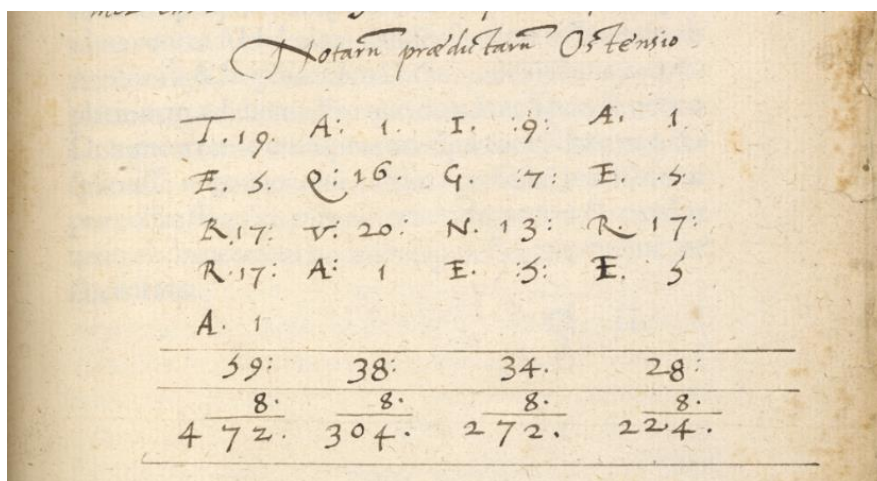 Notarũ prædictarũ Ostensio
T. 19. A: 1. I. :9: A. 1
E 5. Q: 16. G. :7: E. 5.
R. 17: V. 20: N. 13: R. 17:
R. 17: A: 1 E. :5: E. 5
A. 1
59: 38: 34. 28:
8. 8. 8. 8.
472. 304. 272. 224.